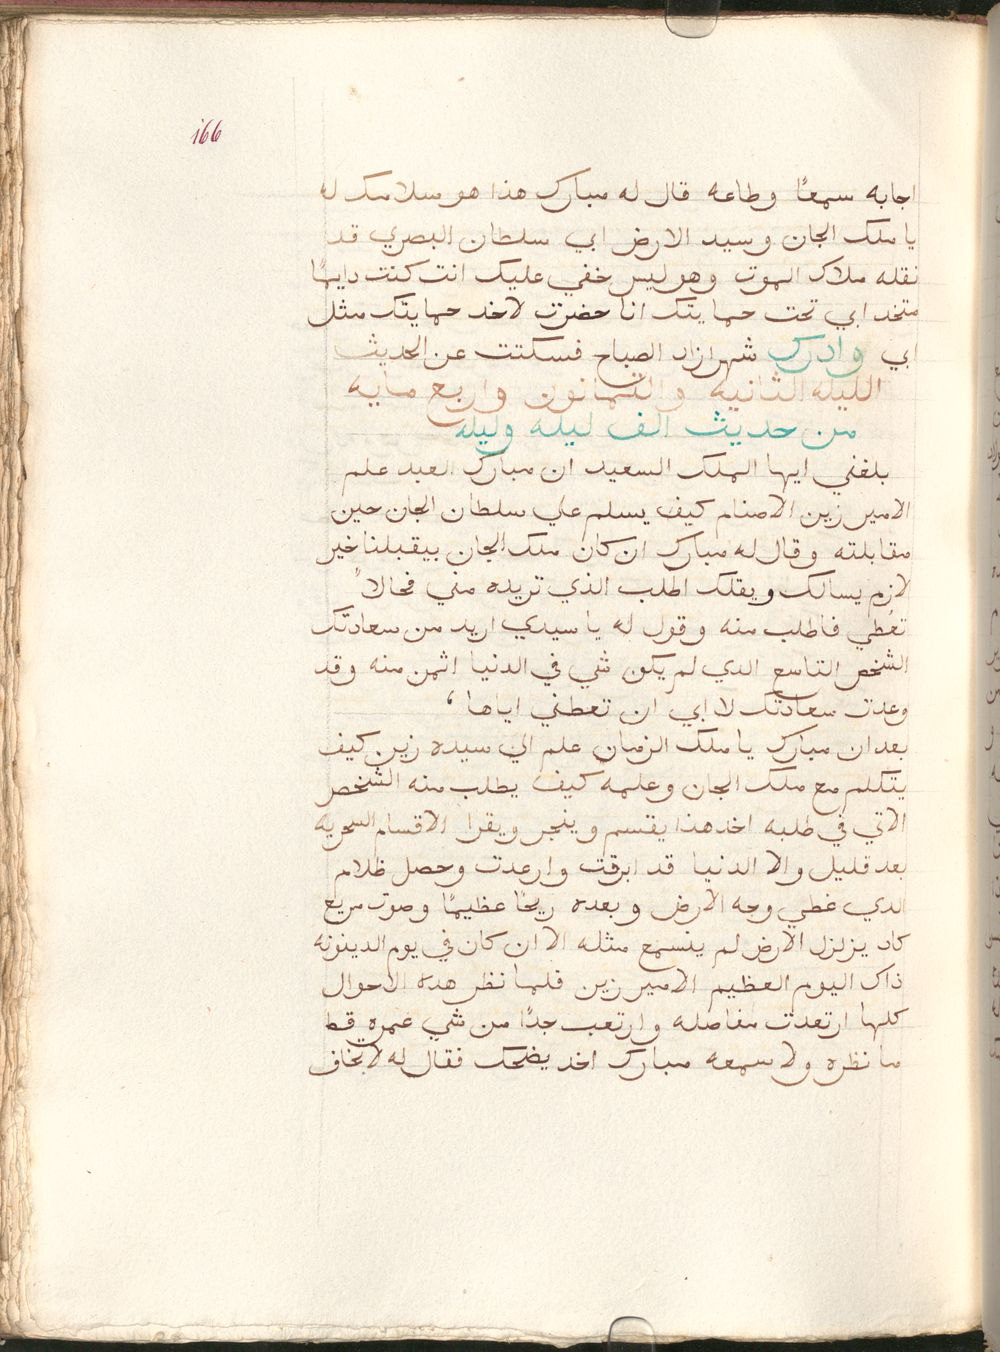 166
اجابه سمعًا وطاعه قال له مبارك هذا هو سلامك له
يا ملك الجان وسيد الارض ابي سلطان البصري قد
نقله ملاك الموت وهو ليس خفي عليك انت كنت دايمًا
متخد ابي تحت حمايتك انا حضرت لاخد حمايتك مثل
ابي وادرك شهرازاد الصباح فسكتت عن الحديث
الليله الثانيه والثمانون واربع مايه
من حديث الف ليله وليله
بلغني ايها الملك السعيد ان مبارك العبد علم
الامير زين الاصنام كيف يسلم علي سلطان الجان حين
مقابلته وقال له مبارك ان كان ملك الجان بيقبلنا خير
لازم يسالك ويقلك اطلب الذي تريده مني فحالاً
تعُطي فاطلب منه وقول له يا سيدي اريد من سعادتك
الشخص التاسع الدي لم يكون شي في الدنيا اثمن منه وقد
وعدت سعادتك لا ابي ان تعطني اياها ،
بعد ان مبارك يا ملك الزمان علم الي سيده زين كيف
يتكلم مع ملك الجان وعلمه كيف يطلب منه الشخص
الاتي في طلبه اخد هذا يقسم وينجر ويقرا الاقسام السحريه
بعد قليل والا الدنيا قد ابرقت وارعدت وحصل ظلام
الدي غطي وجه الارض وبعده ريحًا عظيمًا وصوت مريع
كاد يزلزل الارض لم ينسمع مثله الا ان كان في يوم الدينونه
ذاك اليوم العظيم الامير زين فلما نظر هده الاحوال
كلها ارتعدت مفاصله وارتعب جدًا من شي عمره قط
ما نظره ولا سمعه مبارك اخد يضحك فقال له لا تخاف